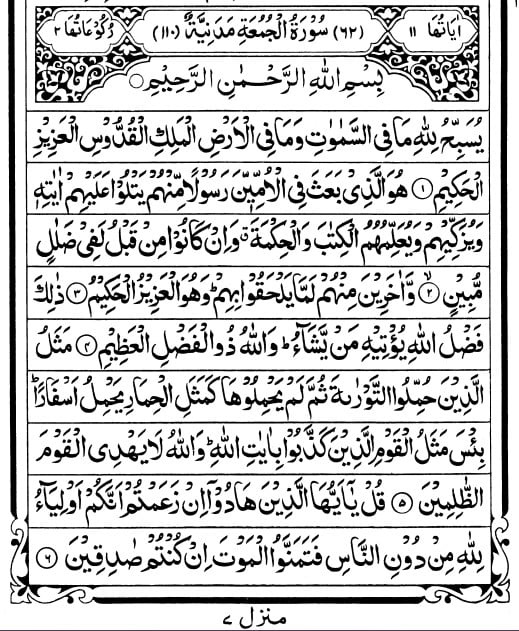 اٰيَاتُهَا ١١ (٦٢) سُوْرَةُ الْجُمُعَةِ مَدَنِيَّةٌ (١١٠) رُكُوْعَاتُهَا ٢
بِسْمِ اللّٰهِ الرَّحْمٰنِ الرَّحِيْمِ ○
يُسَبِّحُ لِلّٰهِ مَا فِى السَّمٰوٰتِ وَمَا فِى الْاَرْضِ الْمَلِكِ الْقُدُّوْسِ الْعَزِيْزِ
الْحَكِيْمِ ۝١ هُوَ الَّذِىْ بَعَثَ فِى الْاُمِّيّٖنَ رَسُوْلًا مِّنْهُمْ يَتْلُوْا عَلَيْهِمْ اٰيٰتِهٖ
وَيُزَكِّيْهِمْ وَيُعَلِّمُهُمُ الْكِتٰبَ وَالْحِكْمَةَ ۗ وَاِنْ كَانُوْا مِنْ قَبْلُ لَفِىْ ضَلٰلٍ
مُّبِيْنٍ ۝٢ وَّاٰخَرِيْنَ مِنْهُمْ لَمَّا يَلْحَقُوْا بِهِمْ ؕ وَهُوَ الْعَزِيْزُ الْحَكِيْمُ ۝٣ ذٰلِكَ
فَضْلُ اللّٰهِ يُؤْتِيْهِ مَنْ يَّشَآءُ ؕ وَاللّٰهُ ذُو الْفَضْلِ الْعَظِيْمِ ۝٤ مَثَلُ
الَّذِيْنَ حُمِّلُوا التَّوْرٰىةَ ثُمَّ لَمْ يَحْمِلُوْهَا كَمَثَلِ الْحِمَارِ يَحْمِلُ اَسْفَارًا ؕ
بِئْسَ مَثَلُ الْقَوْمِ الَّذِيْنَ كَذَّبُوْا بِاٰيٰتِ اللّٰهِ ؕ وَاللّٰهُ لَا يَهْدِى الْقَوْمَ
الظّٰلِمِيْنَ ۝٥ قُلْ يٰۤاَيُّهَا الَّذِيْنَ هَادُوْۤا اِنْ زَعَمْتُمْ اَنَّكُمْ اَوْلِيَآءُ
لِلّٰهِ مِنْ دُوْنِ النَّاسِ فَتَمَنَّوُا الْمَوْتَ اِنْ كُنْتُمْ صٰدِقِيْنَ ۝٦
منزل ٧